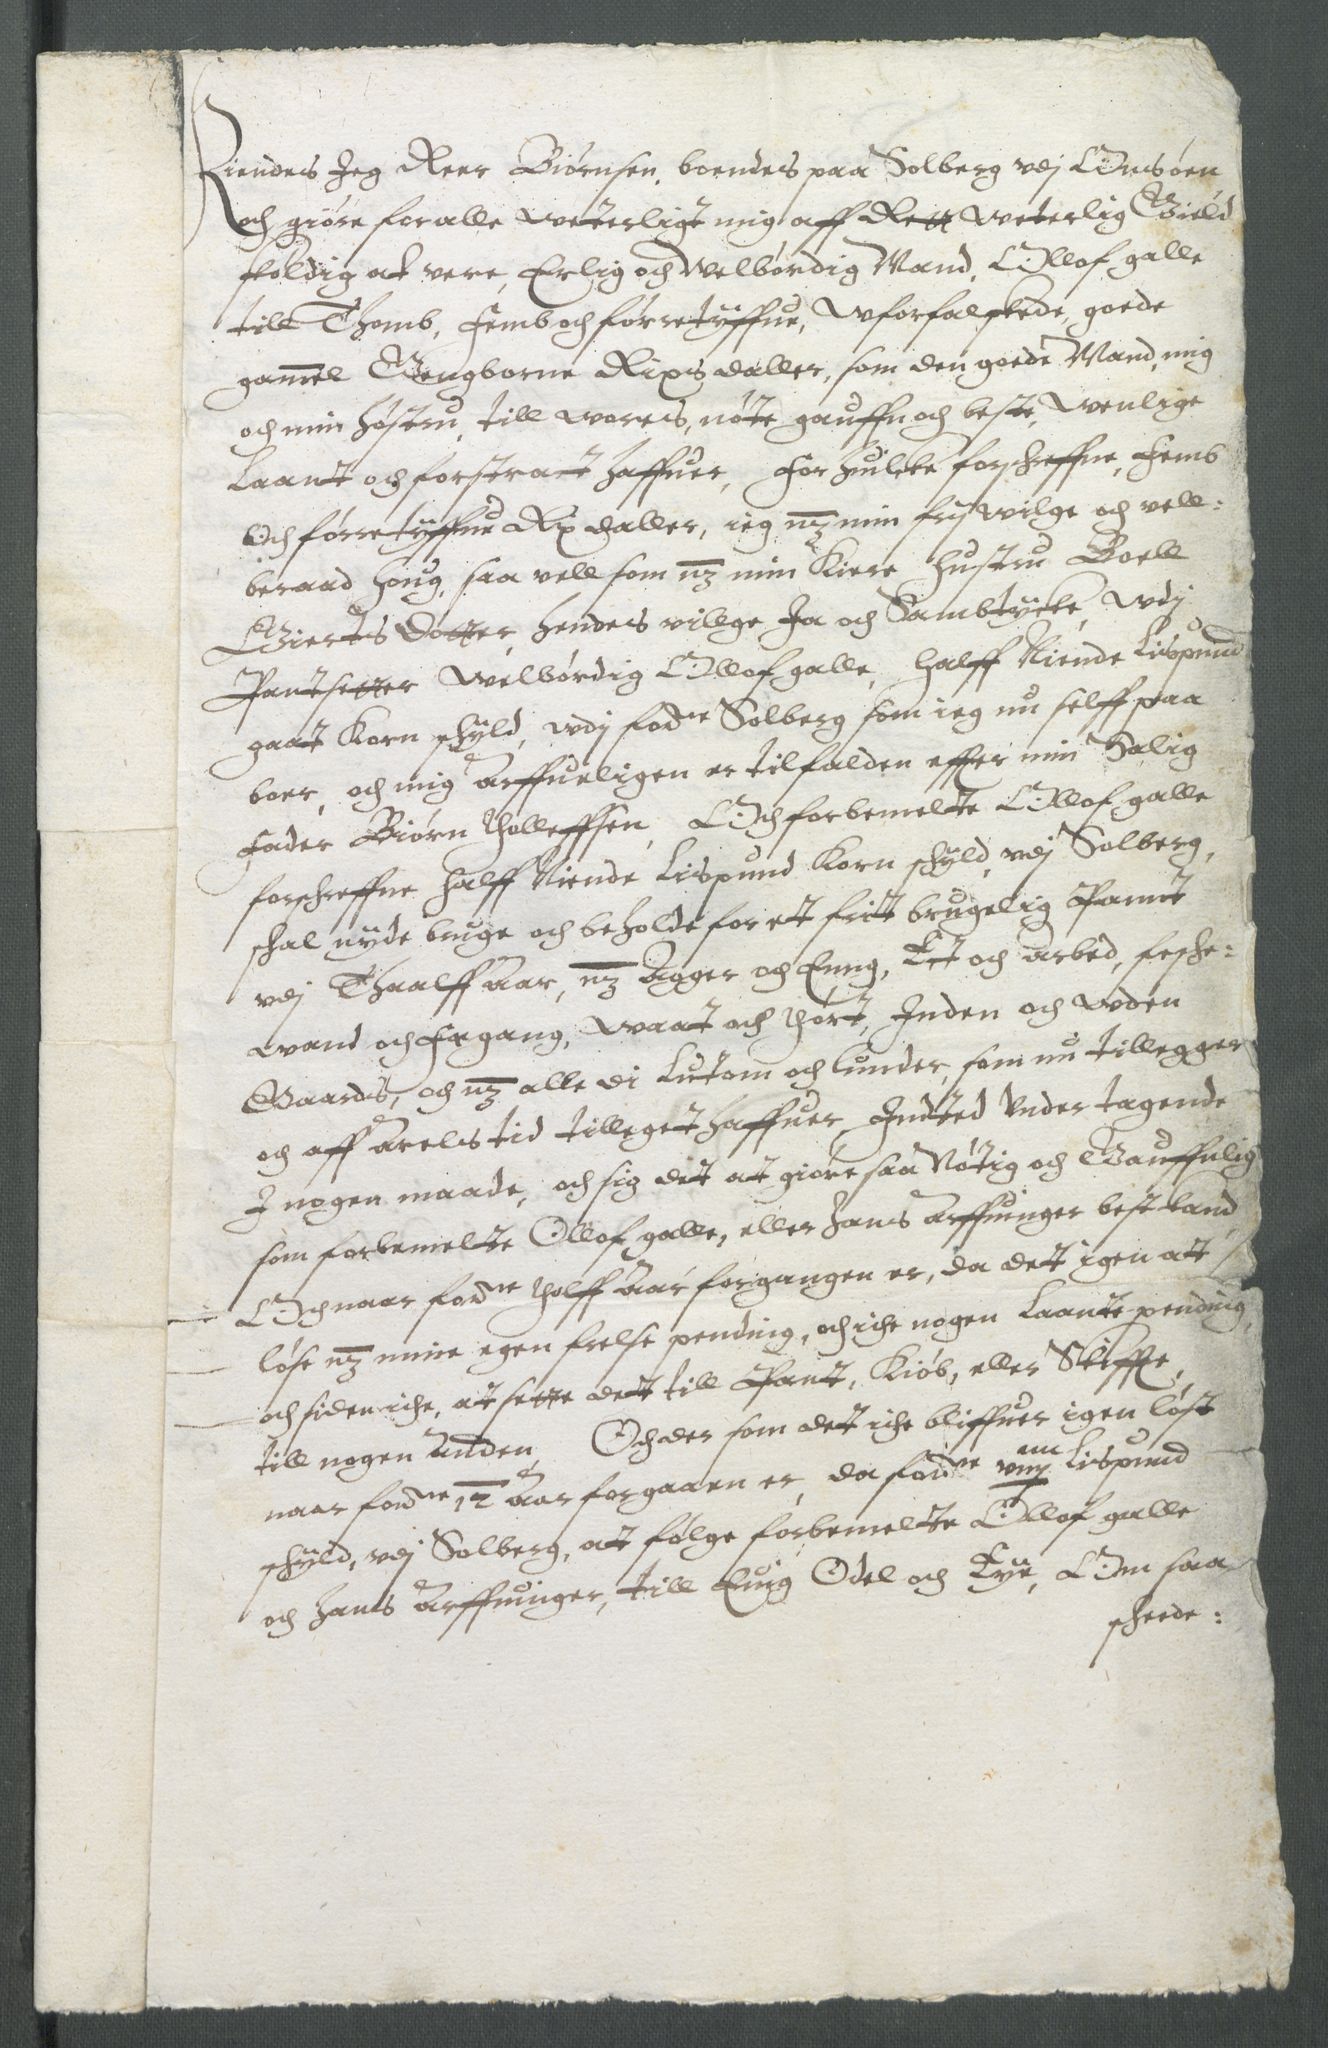 Kiendes Jeg Reer Biørnsen, boendes paa Solberg vdj Omsøen
och giøre for alle witterligt mig aff Rett witterlig Gield
skoldig at vere, Erlig och Welbørdig Mand, Ollof galle
till Thomb, femb och førretyffue, wforfalskede, goede
gammel Gengborne Rixs daller, som den goede Mand, mig
och min høstru, till wores, nøte gauffn och beste, wenlige
Laant och forstract haffuer, for huilcke forschreffne, femb
Och førretyffue Rix daller, ieg mz min frj wilge och vell:
beraad houg, saa vell som mz min Kiere hustru Boell
Gierts Dotter, hendes villge Ja och Sambtycke, wdj
Pantsetter Welbørdig Ollof galle, halff Niende Lispund
gaat Korn schyld, wdj fodne Solberg som ieg nu selff paa
boer, och mig Arffueligen er tilfalden effter min Salig
fader Biørn Tholleffsen, Och forbemelte Ollof galle
forschreffne halff Niende Lispund Korn schyld, vdj Solberg,
schal nyde bruge och beholde for et frit brugelig Pannt
vdj Thaalff Aar, mz Agger och Enng, Ert och arbed, fesche:
wand och fægang, Waat och thørt, Inden och wden
Gaards, och mz alle di Lutom och lunder, som nu tillegger
och aff Arels tid tilleget haffuer, Intted vnder tagende
I nogen maade, och sig det at giøre saa Nøtig och Gauffnlig
som forbemelte Ollof galle, eller hans Arffuinger best kand,
Och naar fodne tholff Aar forgangen er, da det igen at
løse mz mine egen frelse pending, och iche nogen Laante pending,
och siden iche, at sette det till Pant, Kiøb, eller Skiffte,
till nogen Anden, Och der som det iche bliffuer igen løst
naar fodne 12 Aar forgaaen er, da fodne Lispund
schyld, vdj Solberg, at følge forbemelte Ollof galle
och hans Arffuinger, till Euig Odel och Eye, Om saa
scheede: